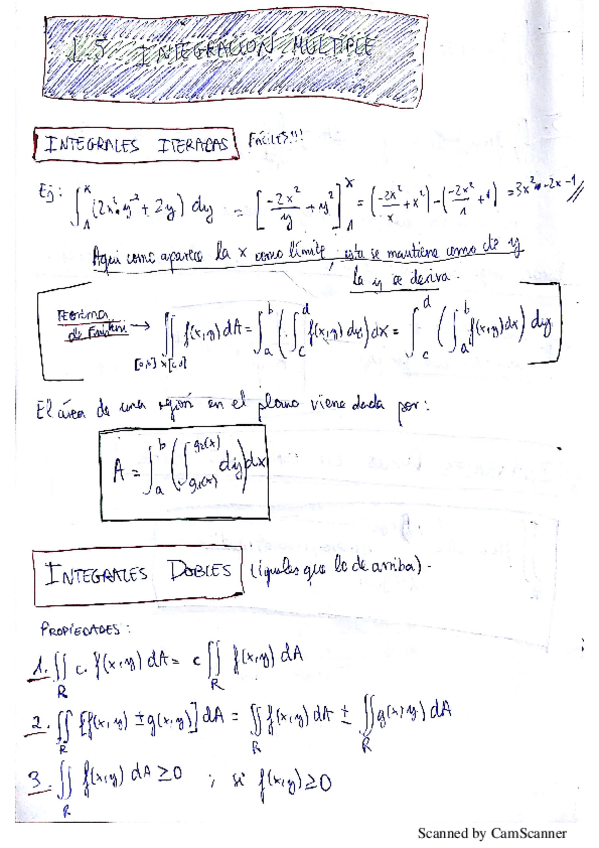 1.5 INTEGRACION MULTIPLE
INTEGRALES ITERADAS FÁCILES!!!
Ej: ∫₁ˣ (2x²·y⁻² + 2y) dy = [-2x²/y + y²]₁ˣ = (-2x²/x + x²) - (-2x²/1 + 1) = 3x² - 2x - 1 //
Aqui como aparece la x como límite, esta se mantiene como de y
la y se deriva.
Teorema
de Fubini → ∬ f(x,y) dA = ∫ₐᵇ (∫꜀ᵈ f(x,y) dy) dx = ∫꜀ᵈ (∫ₐᵇ f(x,y) dx) dy
[a,b] x [c,d]
El área de una región en el plano viene dada por:
A = ∫ₐᵇ (∫_{g₁(x)}^{g₂(x)} dy) dx
INTEGRALES DOBLES (iguales que lo de arriba).
PROPIEDADES:
1. ∬_R c·f(x,y) dA = c ∬_R f(x,y) dA
2. ∬_R [f(x,y) ± g(x,y)] dA = ∬_R f(x,y) dA ± ∬_R g(x,y) dA
3. ∬_R f(x,y) dA ≥ 0 ; si f(x,y) ≥ 0
Scanned by CamScanner